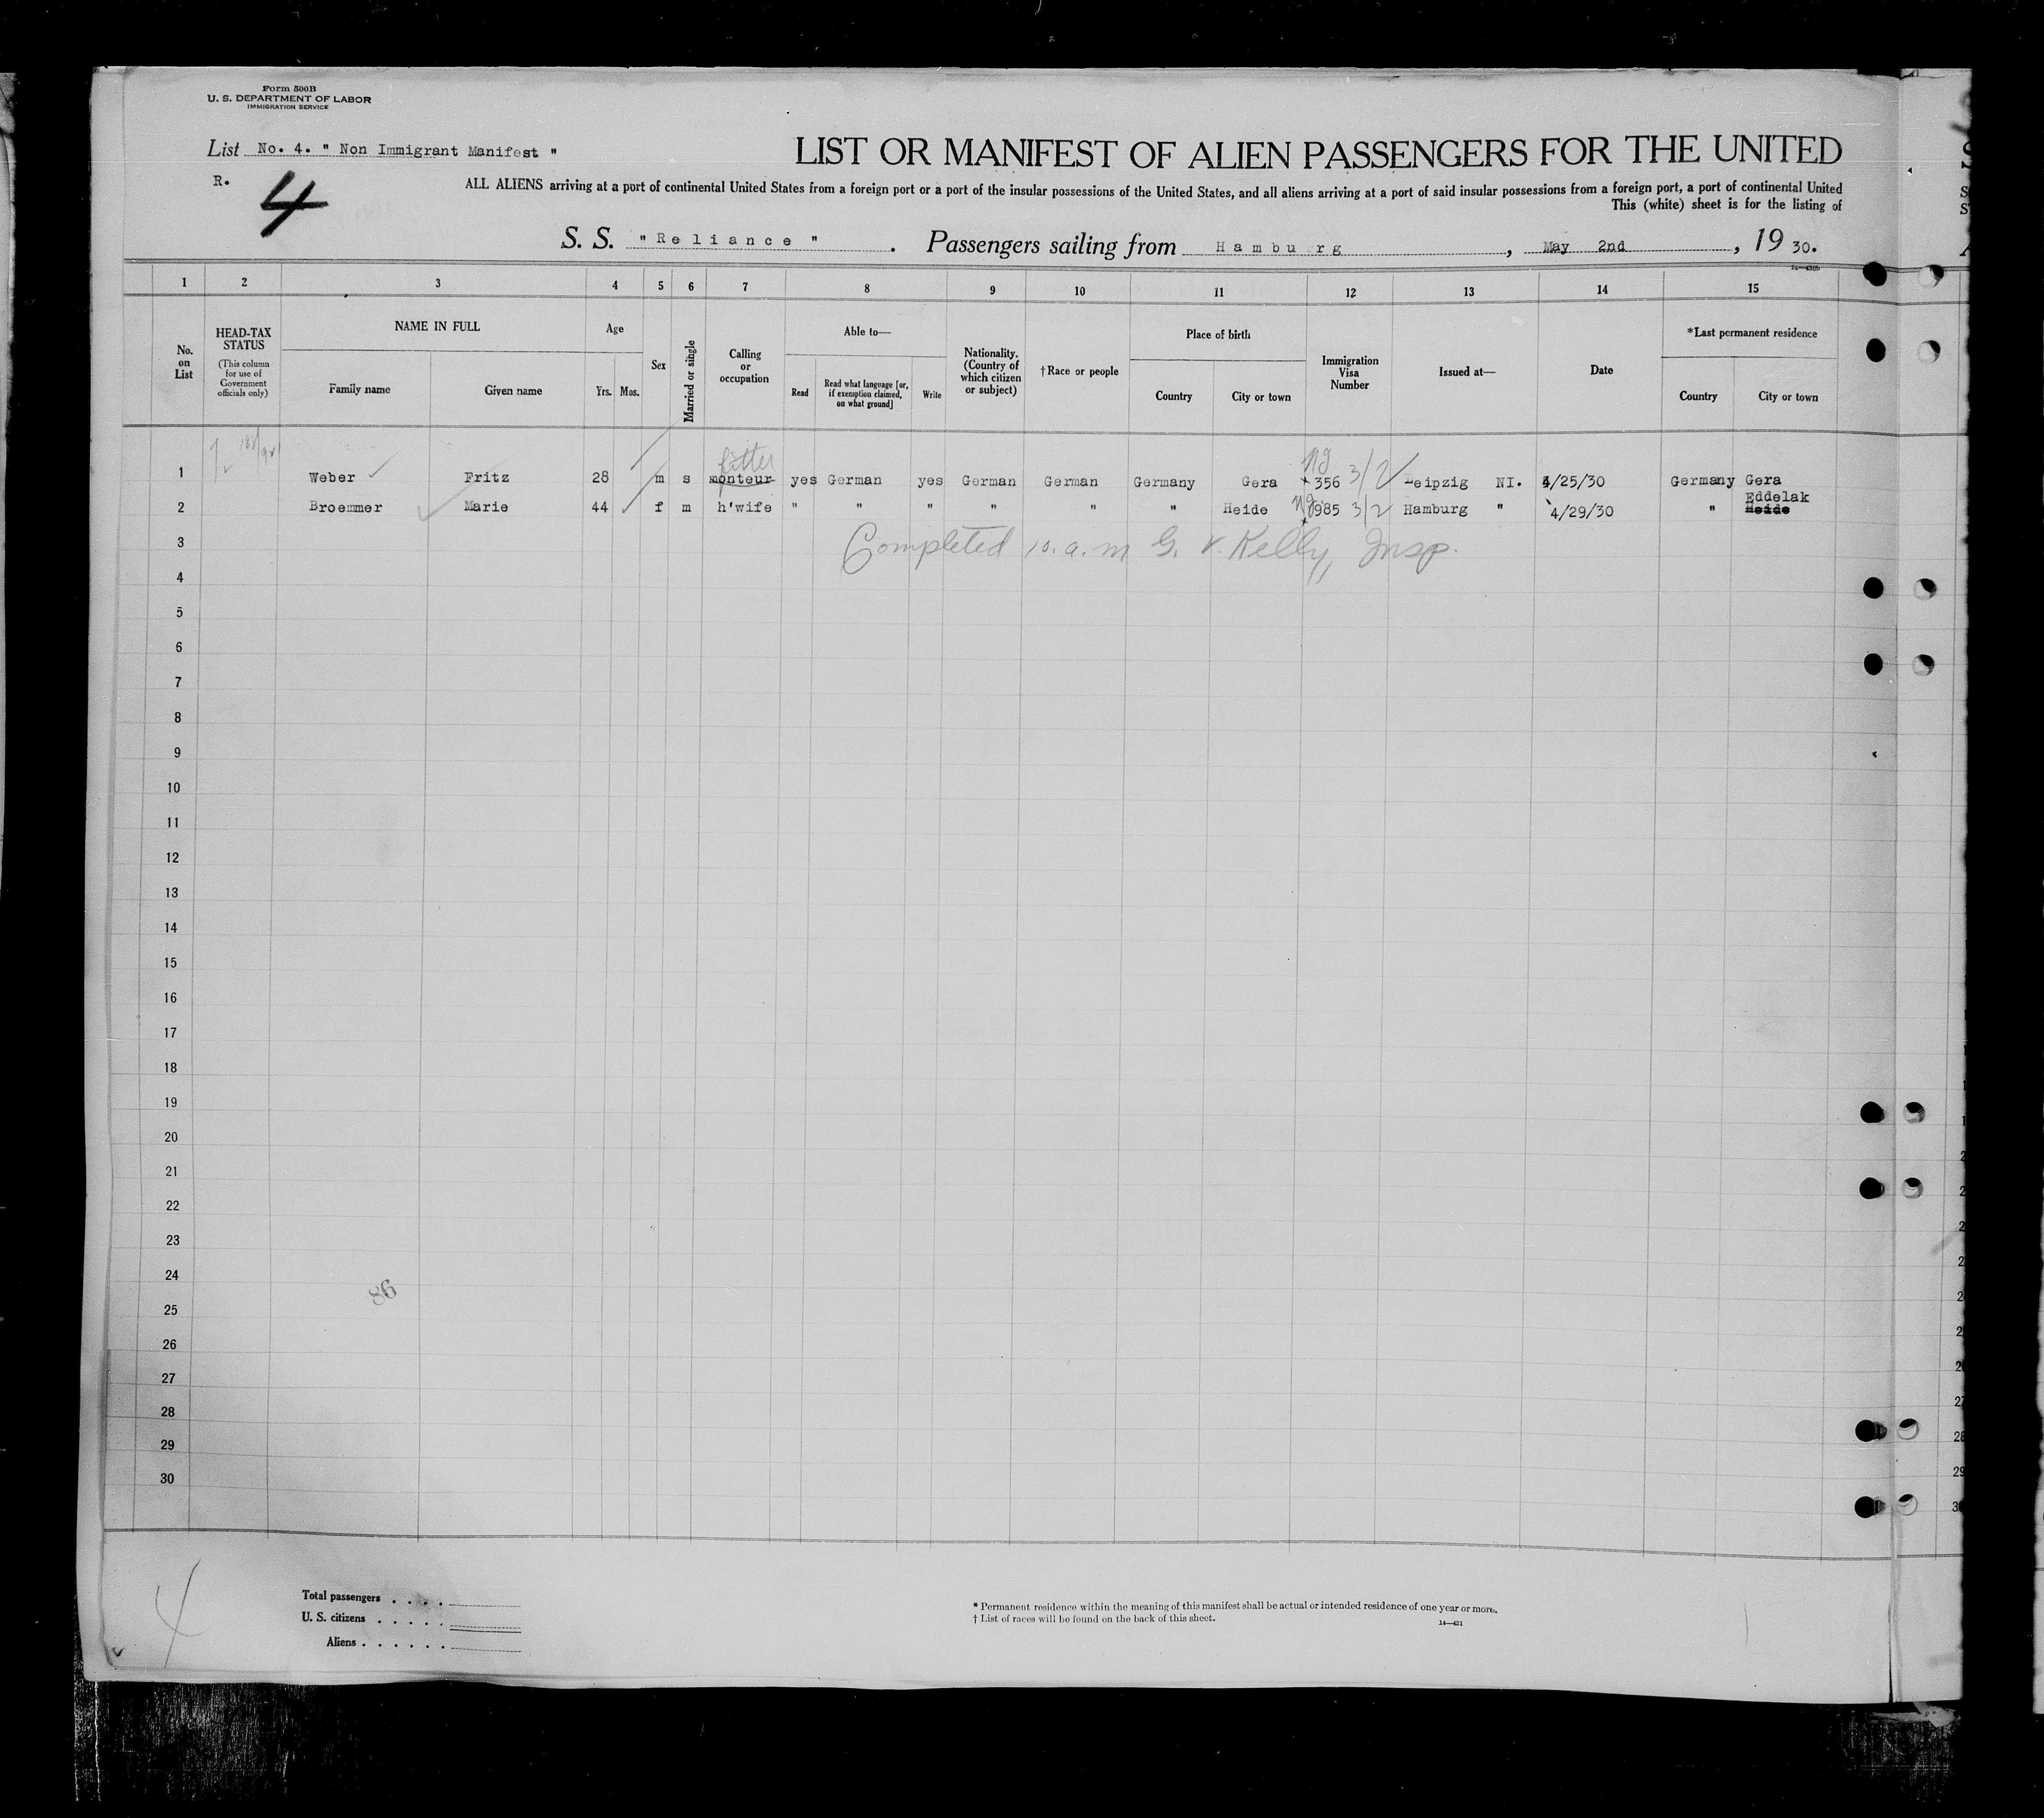 Form 500B
U. S. DEPARTMENT OF LABOR
IMMIGRATION SERVICE
List No. 4. " Non Immigrant Manifest "
LIST OR MANIFEST OF ALIEN PASSENGERS FOR THE UNITED
R. 4
ALL ALIENS arriving at a port of continental United States from a foreign port or a port of the insular possessions of the United States, and all aliens arriving at a port of said insular possessions from a foreign port, a port of continental United
This (white) sheet is for the listing of
S. S. " Reliance " . Passengers sailing from Hamburg , May 2nd , 19 30.
1 2 3 4 5 6 7 8 9 10 11 12 13 14 15
No. on List
HEAD-TAX STATUS (This column for use of Government officials only)
NAME IN FULL Family name Given name
Age Yrs. Mos.
Sex
Married or single
Calling or occupation
Able to— Read Read what language [or, if exemption claimed, on what ground] Write
Nationality. (Country of which citizen or subject)
†Race or people
Place of birth Country City or town
Immigration Visa Number
Issued at—
Date
*Last permanent residence Country City or town
fitter
1 Weber Fritz 28 m s monteur yes German yes German German Germany Gera 356 3/2 Leipzig NI. 4/25/30 Germany Gera
Eddelak
2 Broemmer Marie 44 f m h'wife " " " " " " Heide 985 3/2 Hamburg " 4/29/30 " Heide
3 Completed 10. a.m G. V. Kelly, Insp.
4
5
6
7
8
9
10
11
12
13
14
15
16
17
18
19
20
21
22
23
24
86
25
26
27
28
29
30
4
Total passengers . . . .
U. S. citizens . . . . .
Aliens . . . . . .
* Permanent residence within the meaning of this manifest shall be actual or intended residence of one year or more.
† List of races will be found on the back of this sheet.
14—421